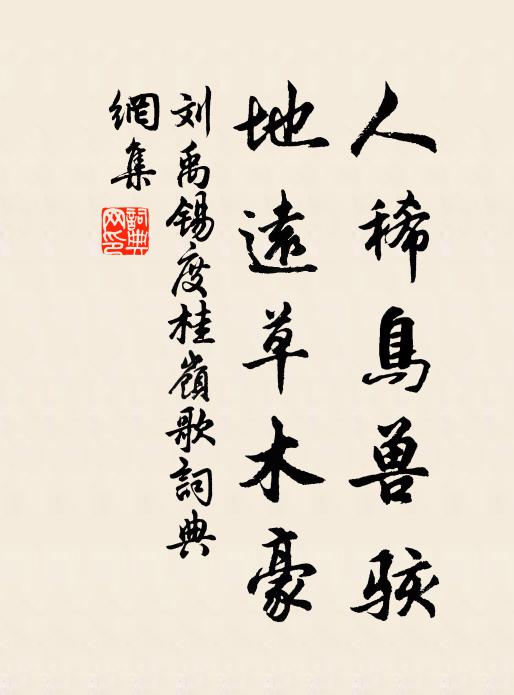 人稀鳥兽骇
地遠草木豪
刘禹锡度桂嶺歌詞典
網集
詞典网印